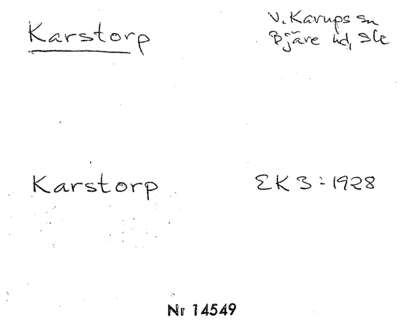 Karstorp
V. Karups sn
Bjäre hd, Sk
Karstorp
EK 3 : 1928
Nr 14549